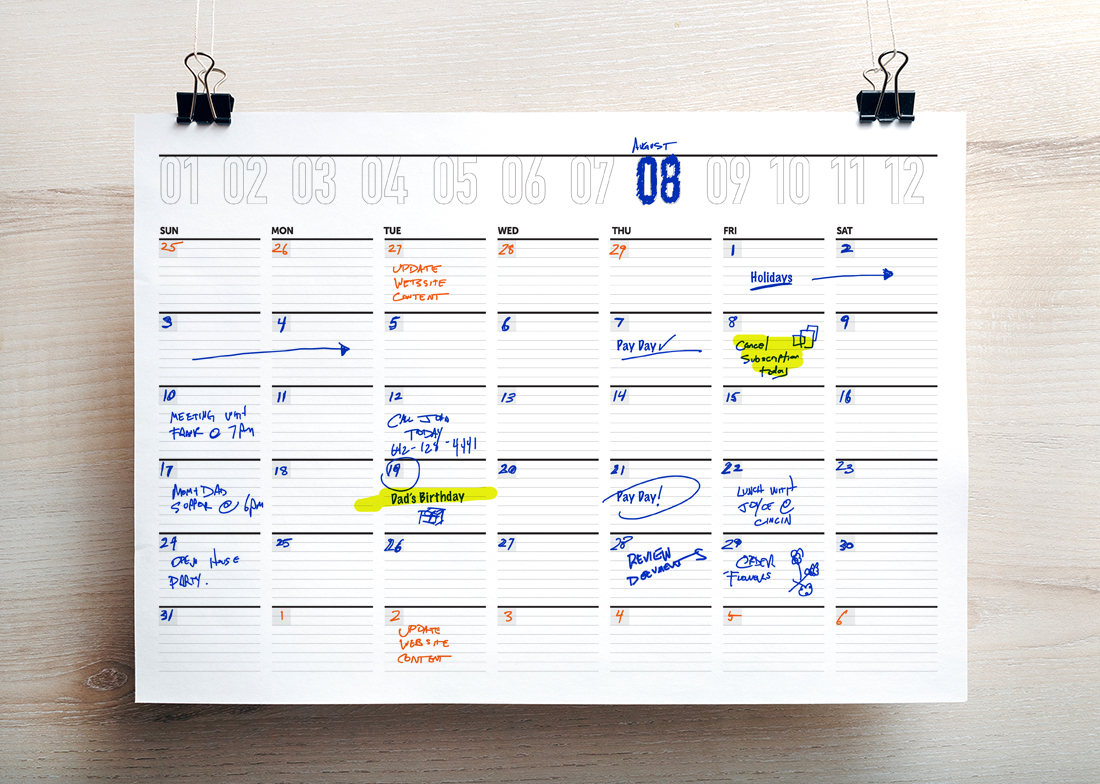 AUGUST
01 02 03 04 05 06 07 08 09 10 11 12
SUN MON TUE WED THU FRI SAT
25 26 27 28 29 1 2
UPDATE
WEBSITE
CONTENT
Holidays
3 4 5 6 7 8 9
Pay Day
Cancel
Subscription
today
10 11 12 13 14 15 16
MEETING WITH
@ 7PM
CALL JOHN
TODAY
642-128-4441
17 18 19 20 21 22 23
MOM+DAD
SUPPER @ 6pm
Dad's Birthday
Pay Day!
LUNCH WITH
JOYCE @
CINCIN
24 25 26 27 28 29 30
OPEN HOUSE
PARTY.
REVIEW
DOCUMENTS
ORDER
FLOWERS
31 1 2 3 4 5 6
UPDATE
WEBSITE
CONTENT